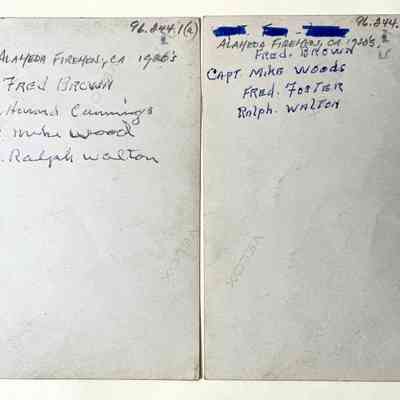 96.044.1(a)
ALAMEDA FIREMEN, CA 1920's
FRED BROWN
Cummings
Mike Wood
Ralph Walton
96.044.
ALAMEDA FIREMEN, CA 1920's
FRED. BROWN
CAPT. MIKE WOODS
FRED. FOSTER
RALPH. WALTON
VELOX
VELOX